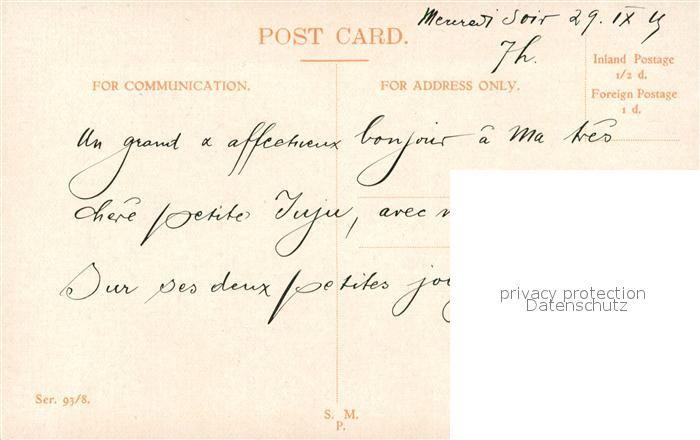 Mercredi Soir 29. IX
7h.
POST CARD.
Inland Postage
1/2 d.
Foreign Postage
1 d.
FOR COMMUNICATION.
FOR ADDRESS ONLY.
Un grand & affectueux bonjour à Ma très
chère petite Juju, avec
Sur ses deux petites
privacy protection
Datenschutz
Ser. 93/8.
S. M.
P.